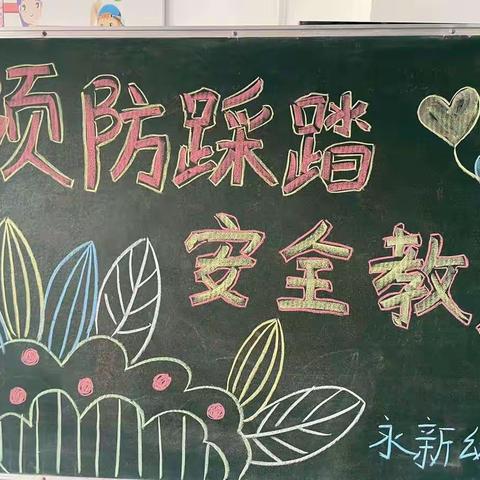 预防踩踏
安全教
永新